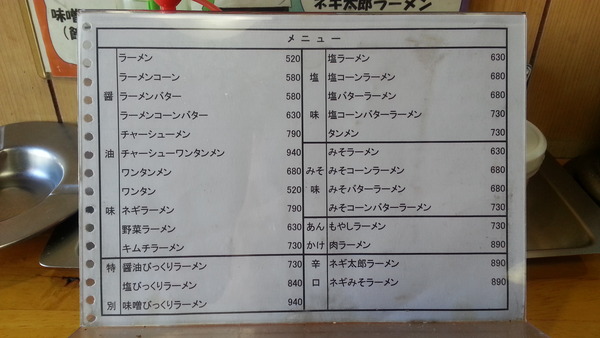 味噌
ネギ太郎ラーメン
メニュー
醤油味
ラーメン 520
ラーメンコーン 580
ラーメンバター 580
ラーメンコーンバター 630
チャーシューメン 790
チャーシューワンタンメン 940
ワンタンメン 680
ワンタン 520
ネギラーメン 790
野菜ラーメン 630
キムチラーメン 730
特別
醤油びっくりラーメン 730
塩びっくりラーメン 840
味噌びっくりラーメン 940
塩味
塩ラーメン 630
塩コーンラーメン 680
塩バターラーメン 680
塩コーンバターラーメン 730
タンメン 730
みそ味
みそラーメン 630
みそコーンラーメン 680
みそバターラーメン 680
みそコーンバターラーメン 730
あんかけ
もやしラーメン 730
肉ラーメン 890
辛口
ネギ太郎ラーメン 890
ネギみそラーメン 890